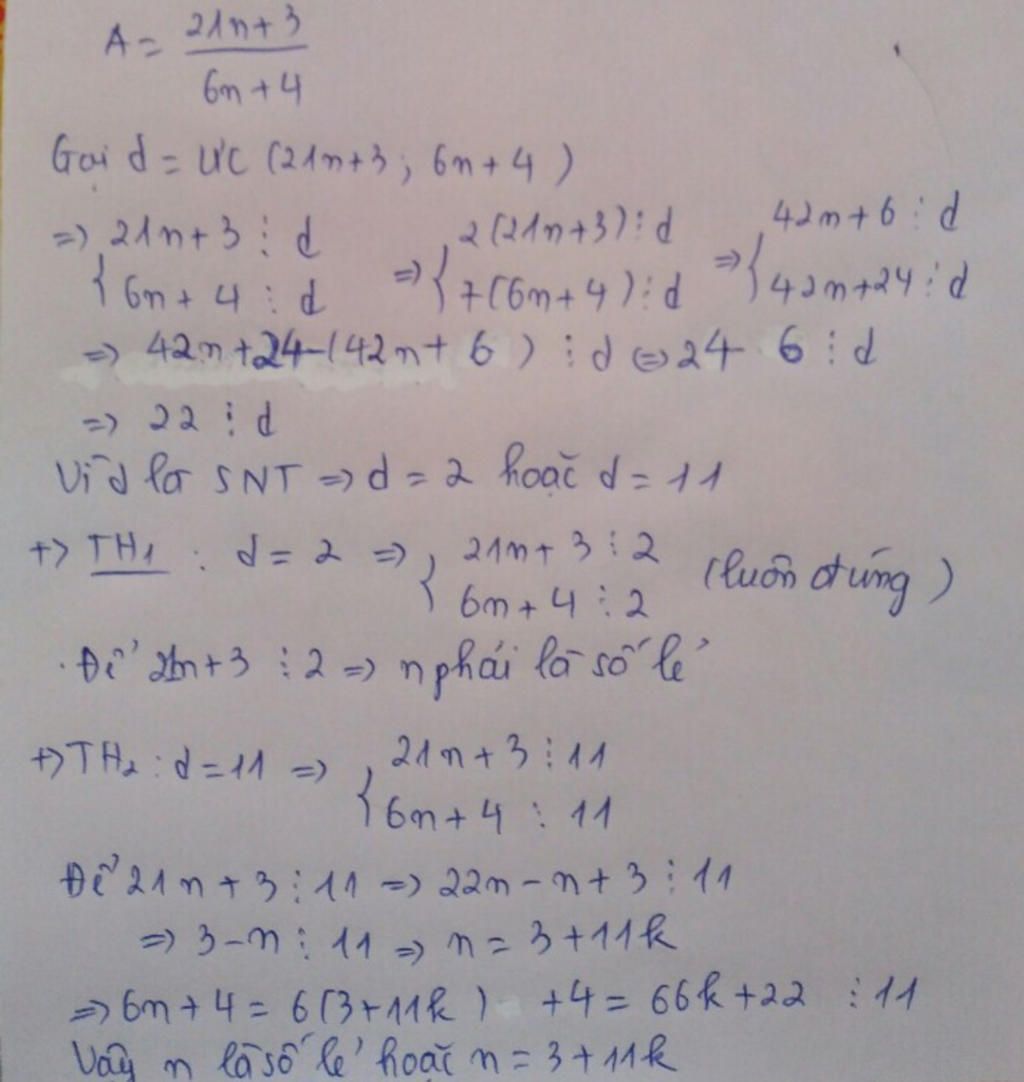 A = \frac{21n+3}{6n+4}
Gọi d = ƯC (21n+3 ; 6n+4)
=> { 21n+3 ⋮ d ; 6n+4 ⋮ d => { 2(21n+3) ⋮ d ; 7(6n+4) ⋮ d => { 42n+6 ⋮ d ; 42n+24 ⋮ d
=> 42n+24-(42n+6) ⋮ d <=> 24-6 ⋮ d
=> 22 ⋮ d
Vì d là SNT => d = 2 hoặc d = 11
+> TH1 : d = 2 => { 21n+3 ⋮ 2 ; 6n+4 ⋮ 2 (luôn đứng)
. Để 21n+3 ⋮ 2 => n phải là số lẻ
+> TH2 : d = 11 => { 21n+3 ⋮ 11 ; 6n+4 ⋮ 11
Để 21n+3 ⋮ 11 => 22n-n+3 ⋮ 11
=> 3-n ⋮ 11 => n = 3+11k
=> 6n+4 = 6(3+11k) +4 = 66k+22 ⋮ 11
Vậy n là số lẻ hoặc n = 3+11k